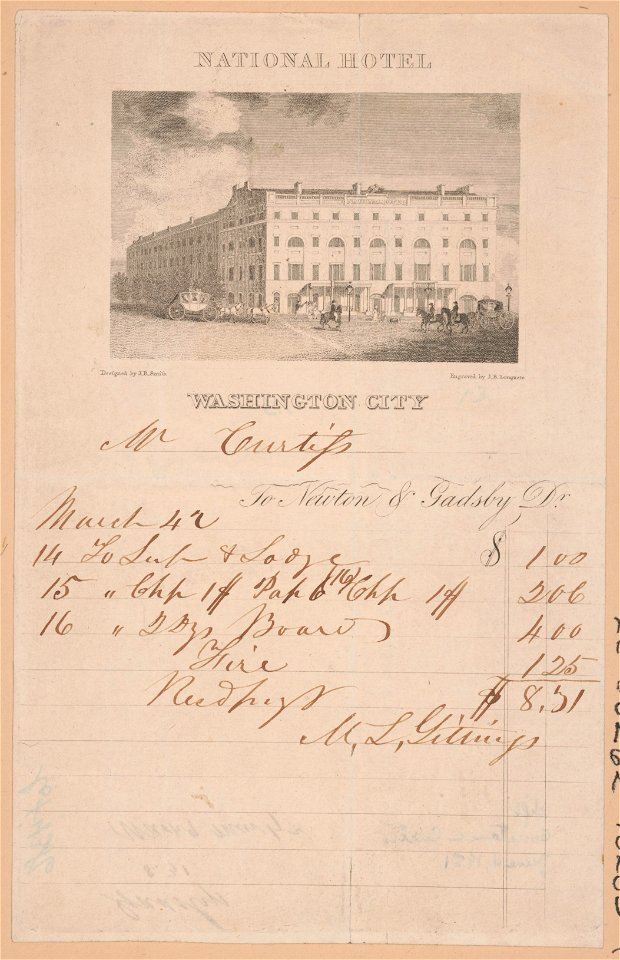 NATIONAL HOTEL
NATIONAL HOTEL
Designed by J.R. Smith.
Engraved by J.B. Longacre
WASHINGTON CITY
Mr Curtiss
To Newton & Gadsby Dr.
March 42
14 To Sup & Lodge $ 1 00
15 " Chp 1$ Pap 6 (16) Chp 1$ 2 06
16 " 2 Dys Board 4 00
Fire 1 25
Recd payt $ 8.31
M. L. Gittings